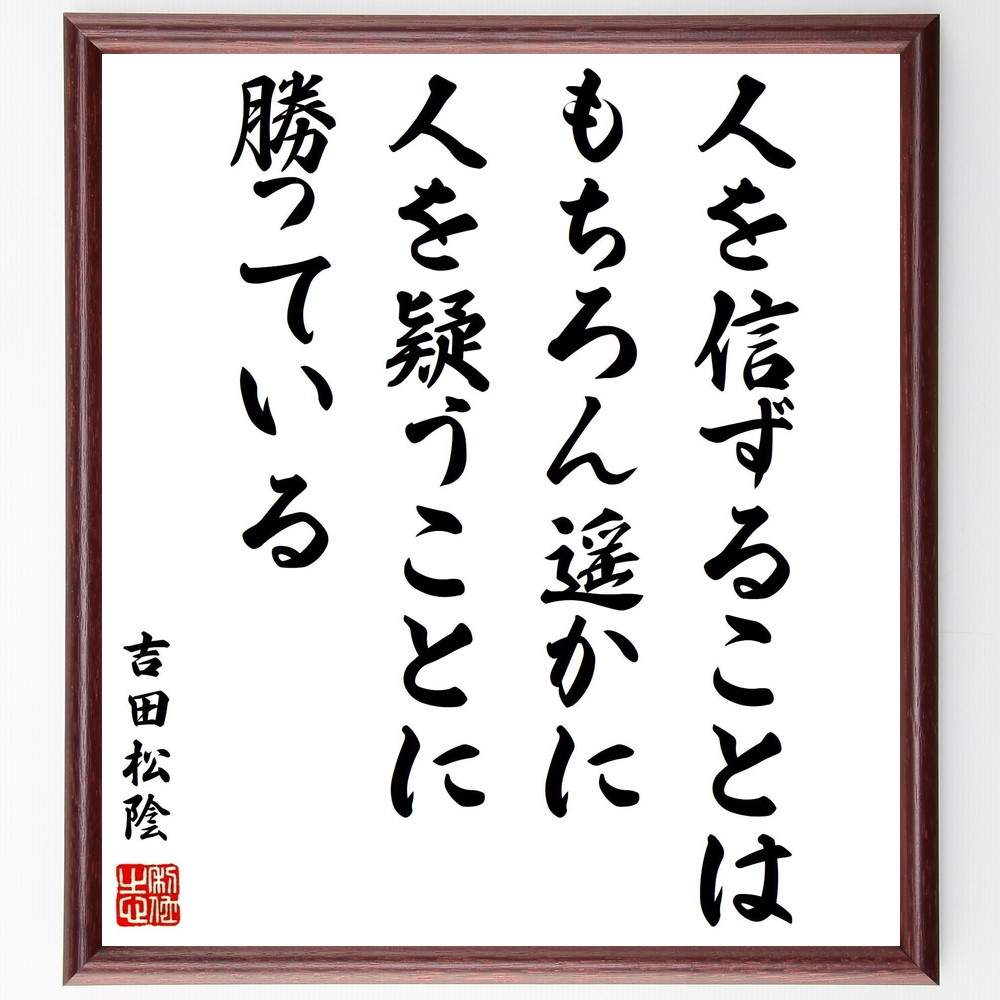 人を信ずることは
もちろん遥かに
人を疑うことに
勝っている
吉田松陰